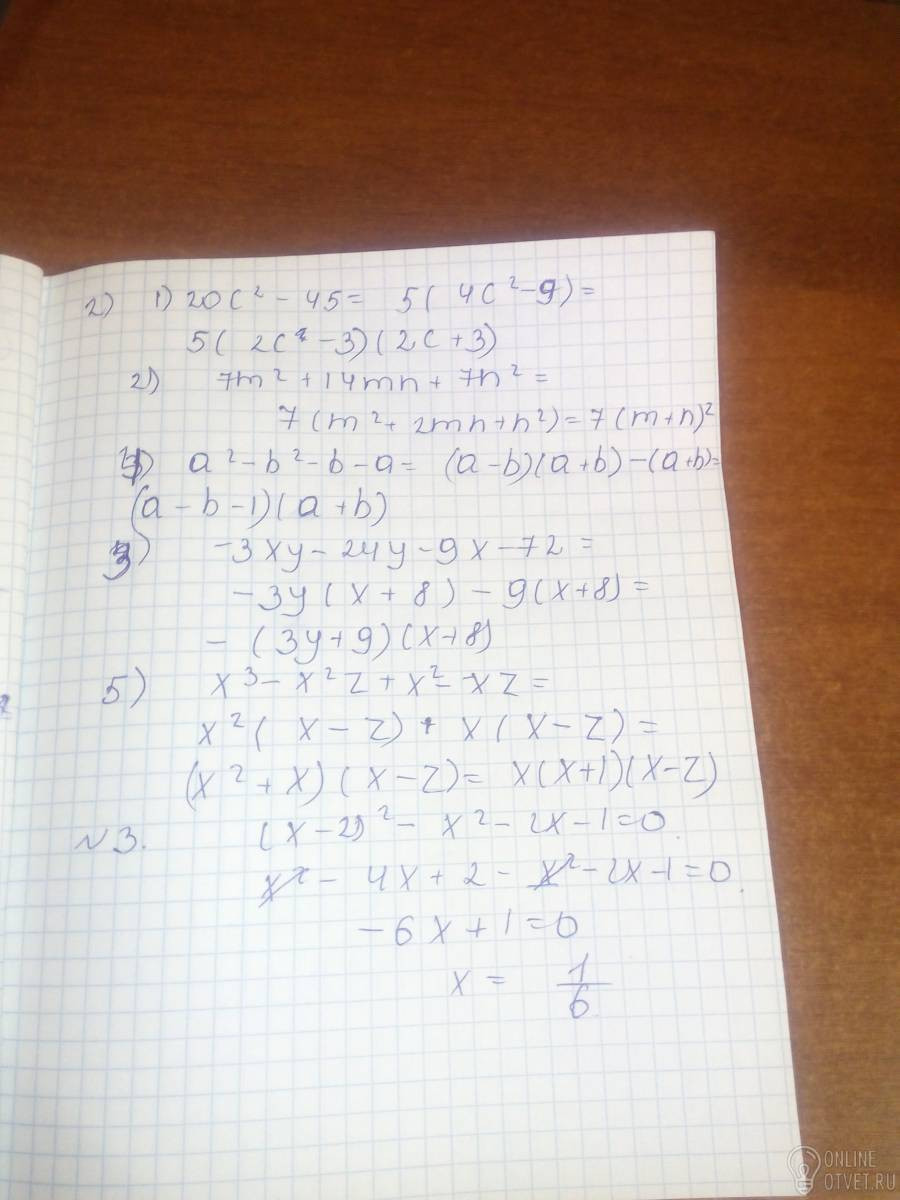 2) 1) 20c² - 45 = 5( 4c² - 9) =
5( 2c² - 3)( 2c + 3)
2) 7m² + 14mn + 7n² =
7(m² + 2mn + n²) = 7(m+n)²
a² - b² - b - a = (a - b)(a + b) - (a + b) =
(a - b - 1)(a + b)
3) -3xy - 24y - 9x - 72 =
- 3y( x + 8) - 9(x + 8) =
- (3y + 9)(x + 8)
5) x³ - x²z + x² - xz =
x²( x - z) + x( x - z) =
(x² + x)(x - z) = x(x+1)(x - z)
№3. (x - 2)² - x² - 2x - 1 = 0.
x² - 4x + 2 - x² - 2x - 1 = 0.
- 6x + 1 = 0
x = 1/6
ONLINE
OTVET.RU